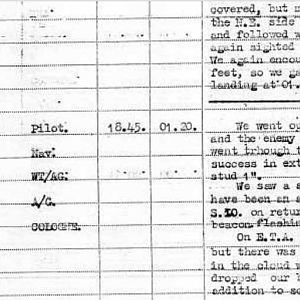 covered, but
the N.E. side
and followed
again sighted
We again encou
feet, so we ga
landing at 01.
Pilot. 18.45. 01.20.
Nav:
WT/AG:
A/G.
COLOGNE.
We went ou
and the enemy
went trhough t
success in ext
stud 1".
We saw a s
have been an a
S.10. on retur
beacon flashin
On E.T.A.
but there was
in the cloud w
dropped our
addition to so